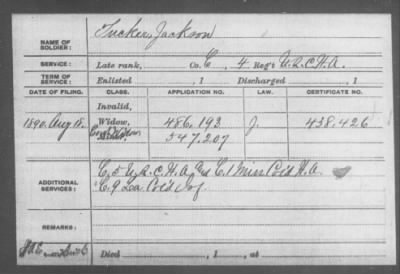 NAME OF SOLDIER: Tucker, Jackson
SERVICE: Late rank, Co. C, 4 Reg't U.S.C.H.A.
TERM OF SERVICE: Enlisted , 1 Discharged , 1
DATE OF FILING. CLASS. APPLICATION NO. LAW. CERTIFICATE NO.
Invalid,
1890, Aug 18. Widow, 486.193 J. 438.426
547.207
ADDITIONAL SERVICES: C. 5 U.S.C.H.A. and C. 1 Miss Col'd H.A.
C. 9 La. Col'd Inf.
REMARKS:
Died , 1 , at